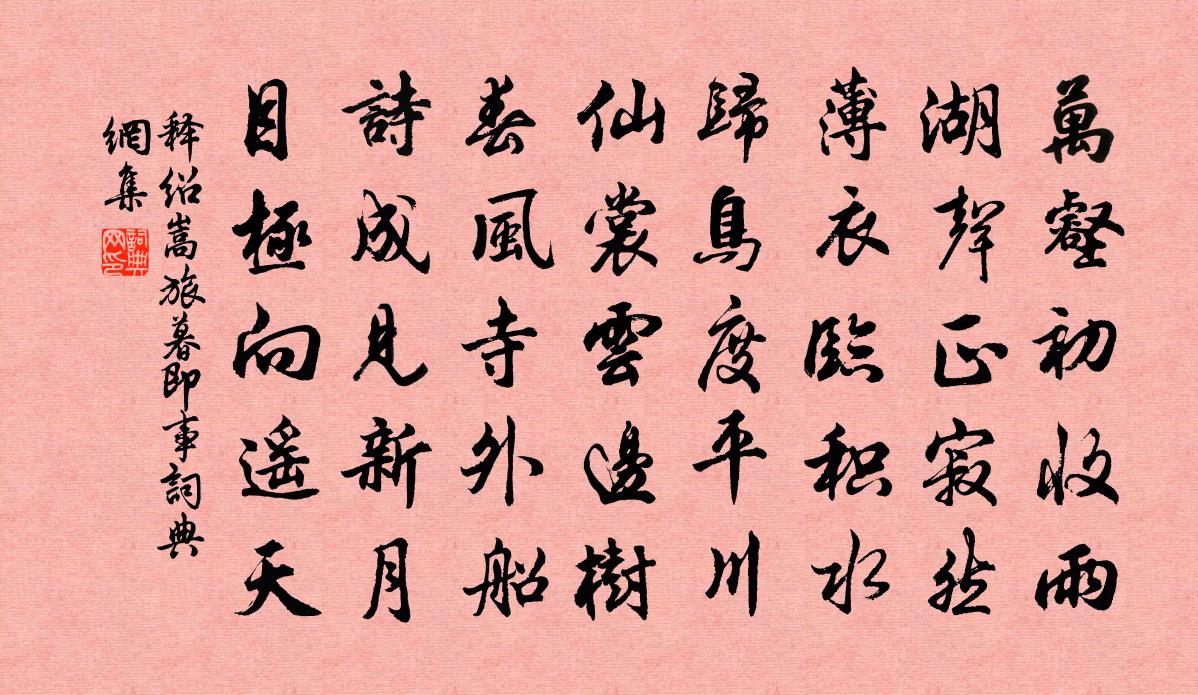 萬壑初收雨
湖聲正寂然
薄衣臨积水
歸鳥度平川
仙裳雲邊樹
春風寺外船
詩成見新月
目極向遥天
释绍嵩旅暮即事詞典
網集
詞典
网印